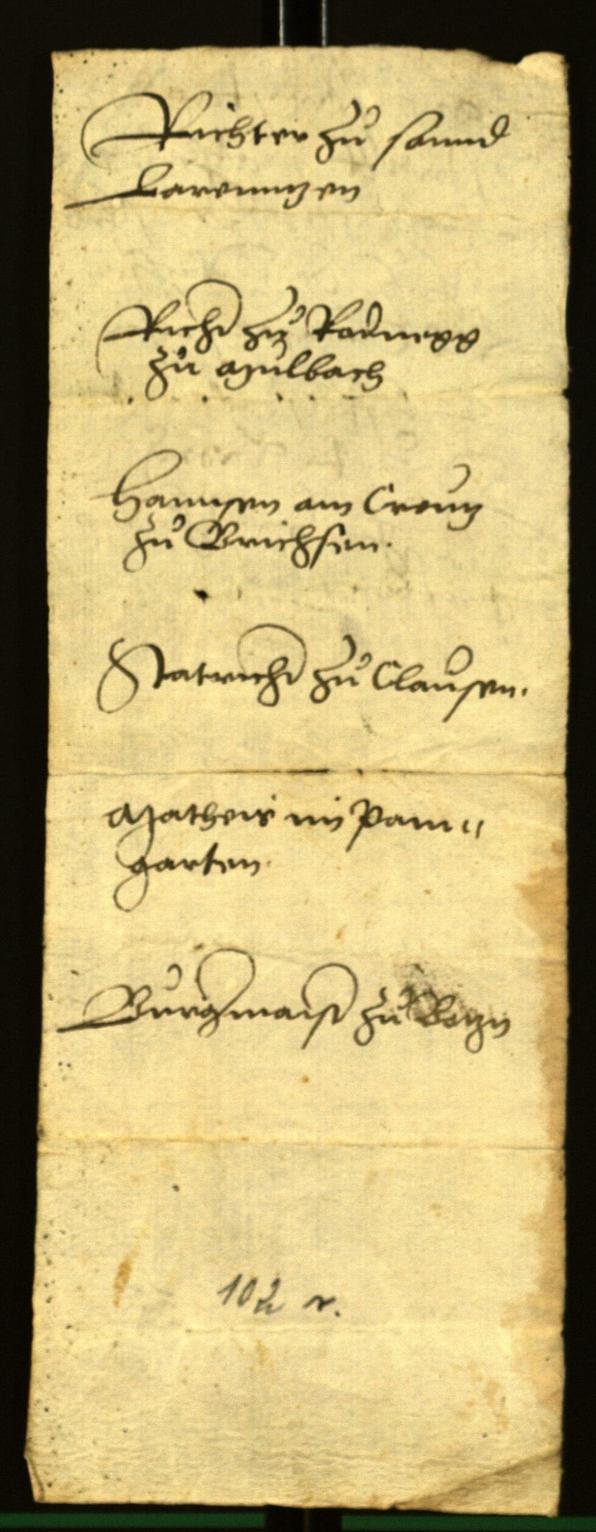 Richter zu sannd
Larenntzen
Richter zu Rodnegg
zu Mulbach
Hannsen am Creutz
zu Brichsen.
Statrichter zu Clausen.
Matheis im Pam„
garten.
Burgermaister zu Botzn
102 r.